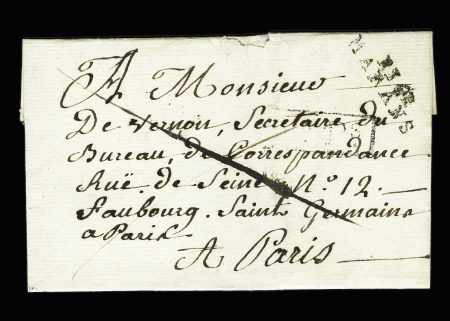 A Monsieur
De Vernon, Secretaire du
Bureau, de Correspandance
Ruë de Seine, N.º 12.
Faubourg. Saint Germains
a Paris
A Paris
MARANS